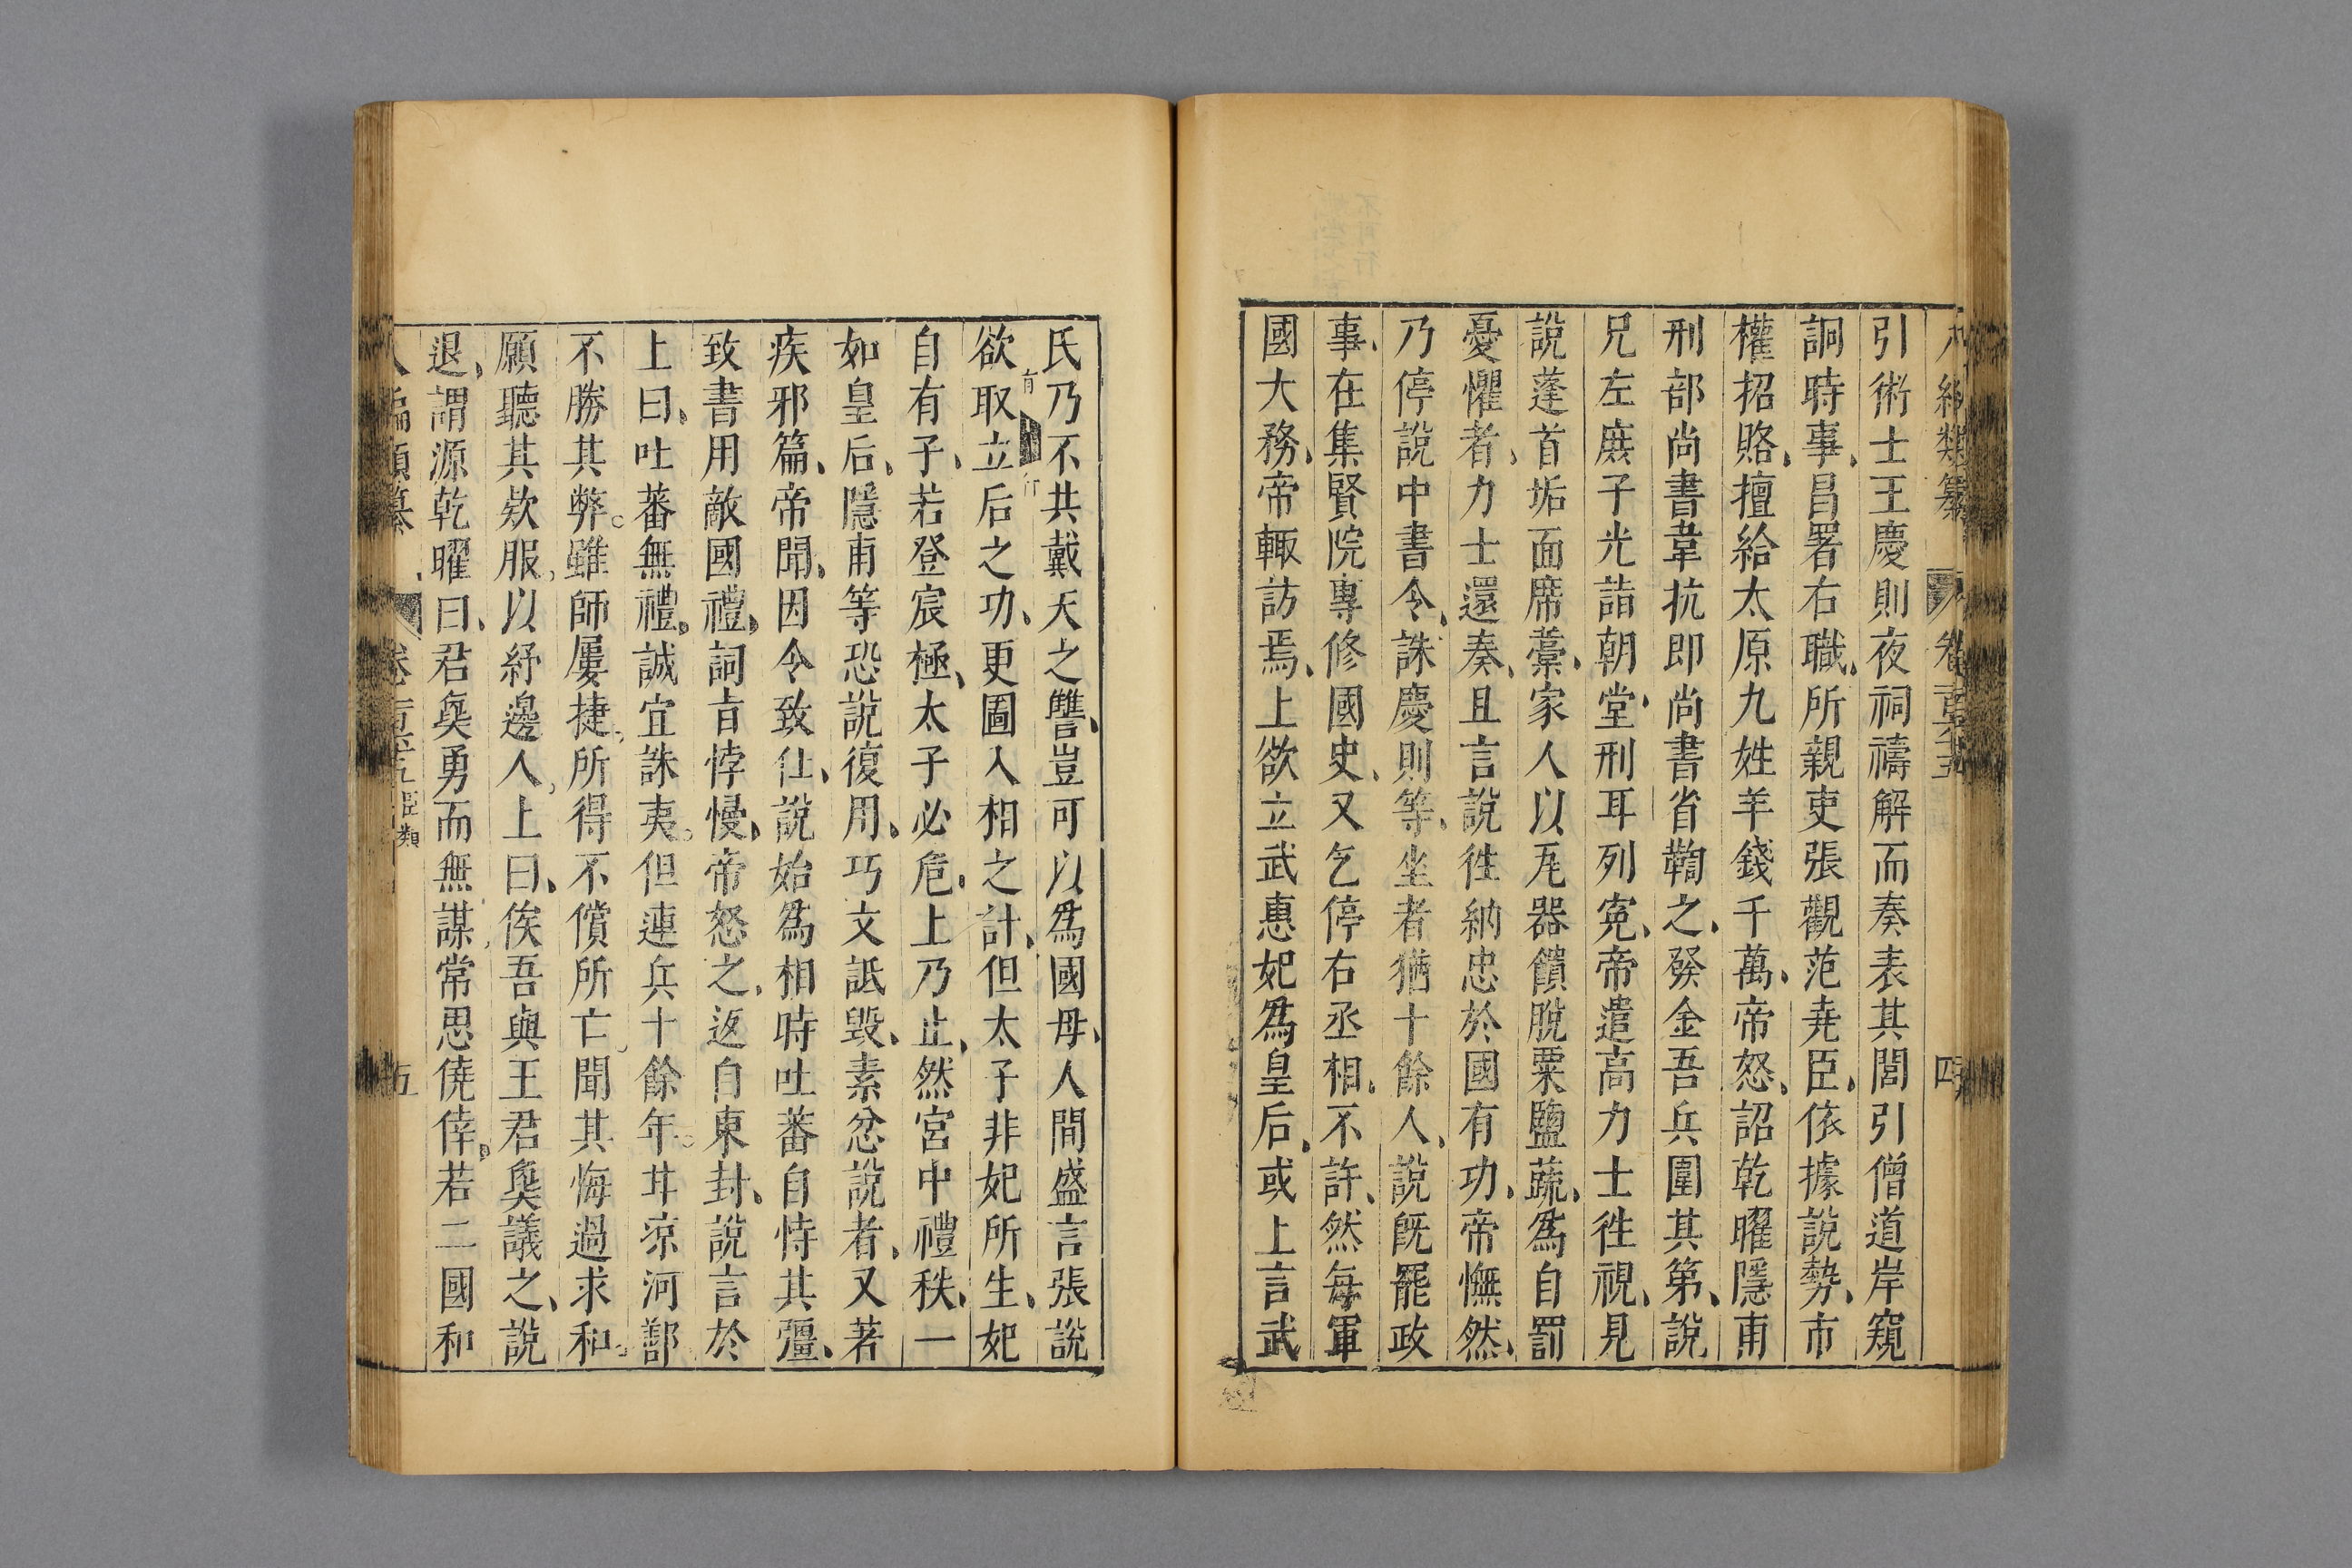 八編類纂 卷一百五十五 四
引術士王慶則夜祠禱解而奏表其閭引僧道岸窺
詗時事、昌署右職、所親吏張觀范堯臣、依據說勢、市
權招賂、擅給太原九姓羊錢千萬、帝怒、詔乾曜隱甫
刑部尚書韋抗即尚書省鞫之、發金吾兵圍其第、說
兄左庶子光詣朝堂、刑耳列寃、帝遣高力士徃視、見
說蓬首垢面席藁、家人以瓦器饋脫粟鹽蔬、為自罰
憂懼者、力士還奏、且言說徃納忠於國有功、帝憮然、
乃停說中書令、誅慶則等、坐者猶十餘人、說旣罷政
事、在集賢院專修國史、又乞停右丞相、不許、然每軍
國大務、帝輒訪焉、上欲立武惠妃為皇后、或上言武
氏乃不共戴天之讐、豈可以為國母、人間盛言張說
欲取立后之功、更圖入相之計、但太子非妃所生、妃
自有子、若登宸極、太子必危、上乃止、然宮中禮秩、一
如皇后、隱甫等恐說復用、巧文詆毀、素忿說者、又著
疾邪篇、帝聞、因令致仕、說始為相時吐蕃自恃其彊、
致書用敵國禮、詞㫖悖慢、帝怒之、返自東封、說言於
上曰、吐蕃無禮、誠宜誅夷。但連兵十餘年。甘凉河鄯
不勝其弊。雖師屢捷、所得不償所亡、聞其悔過求和、
願聽其欵服、以紓邊人、上曰、俟吾與王君㚟議之、說
退、謂源乾曜曰、君㚟勇而無謀、常思僥倖、若二國和
類纂 五